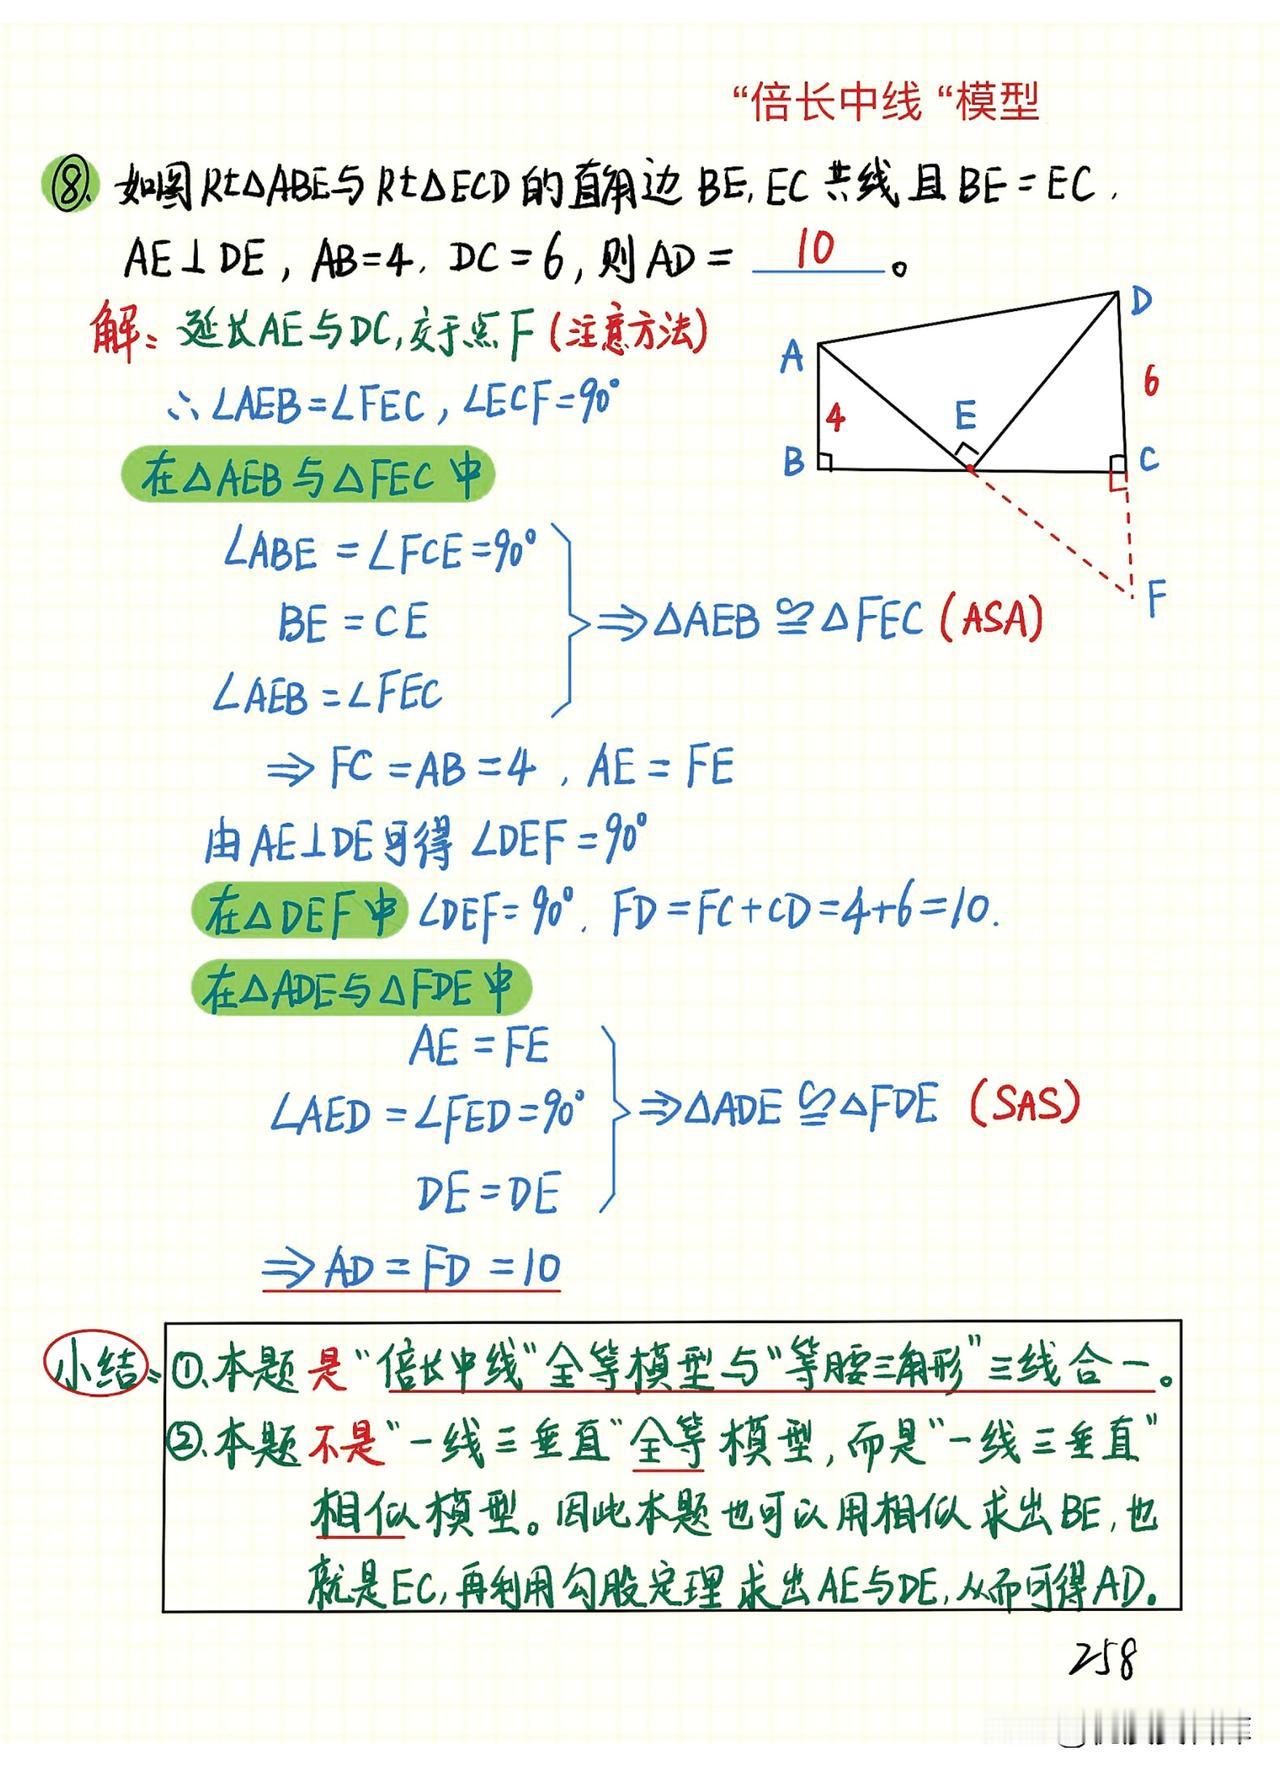 “倍长中线“模型
⑧. 如图Rt△ABE与Rt△ECD的直角边BE, EC共线且BE=EC,
AE⊥DE, AB=4, DC=6, 则AD=10。
解: 延长AE与DC,交于点F(注意方法)
∴∠AEB=∠FEC,∠ECF=90°
在△AEB与△FEC中
∠ABE=∠FCE=90°
BE=CE
⇒△AEB≌△FEC(ASA)
∠AEB=∠FEC
⇒FC=AB=4, AE=FE
由AE⊥DE可得∠DEF=90°
在△DEF中∠DEF=90°, FD=FC+CD=4+6=10.
在△ADE与△FDE中
AE=FE
∠AED=∠FED=90°
⇒△ADE≌△FDE (SAS)
DE=DE
⇒AD=FD=10
A
B
C
D
E
F
4
6
小结:
①.本题是“倍长中线”全等模型与“等腰三角形”三线合一。
②.本题不是“一线三垂直”全等模型,而是“一线三垂直”
相似模型。因此本题也可以用相似求出BE,也
就是EC,再利用勾股定理求出AE与DE,从而可得AD。
258